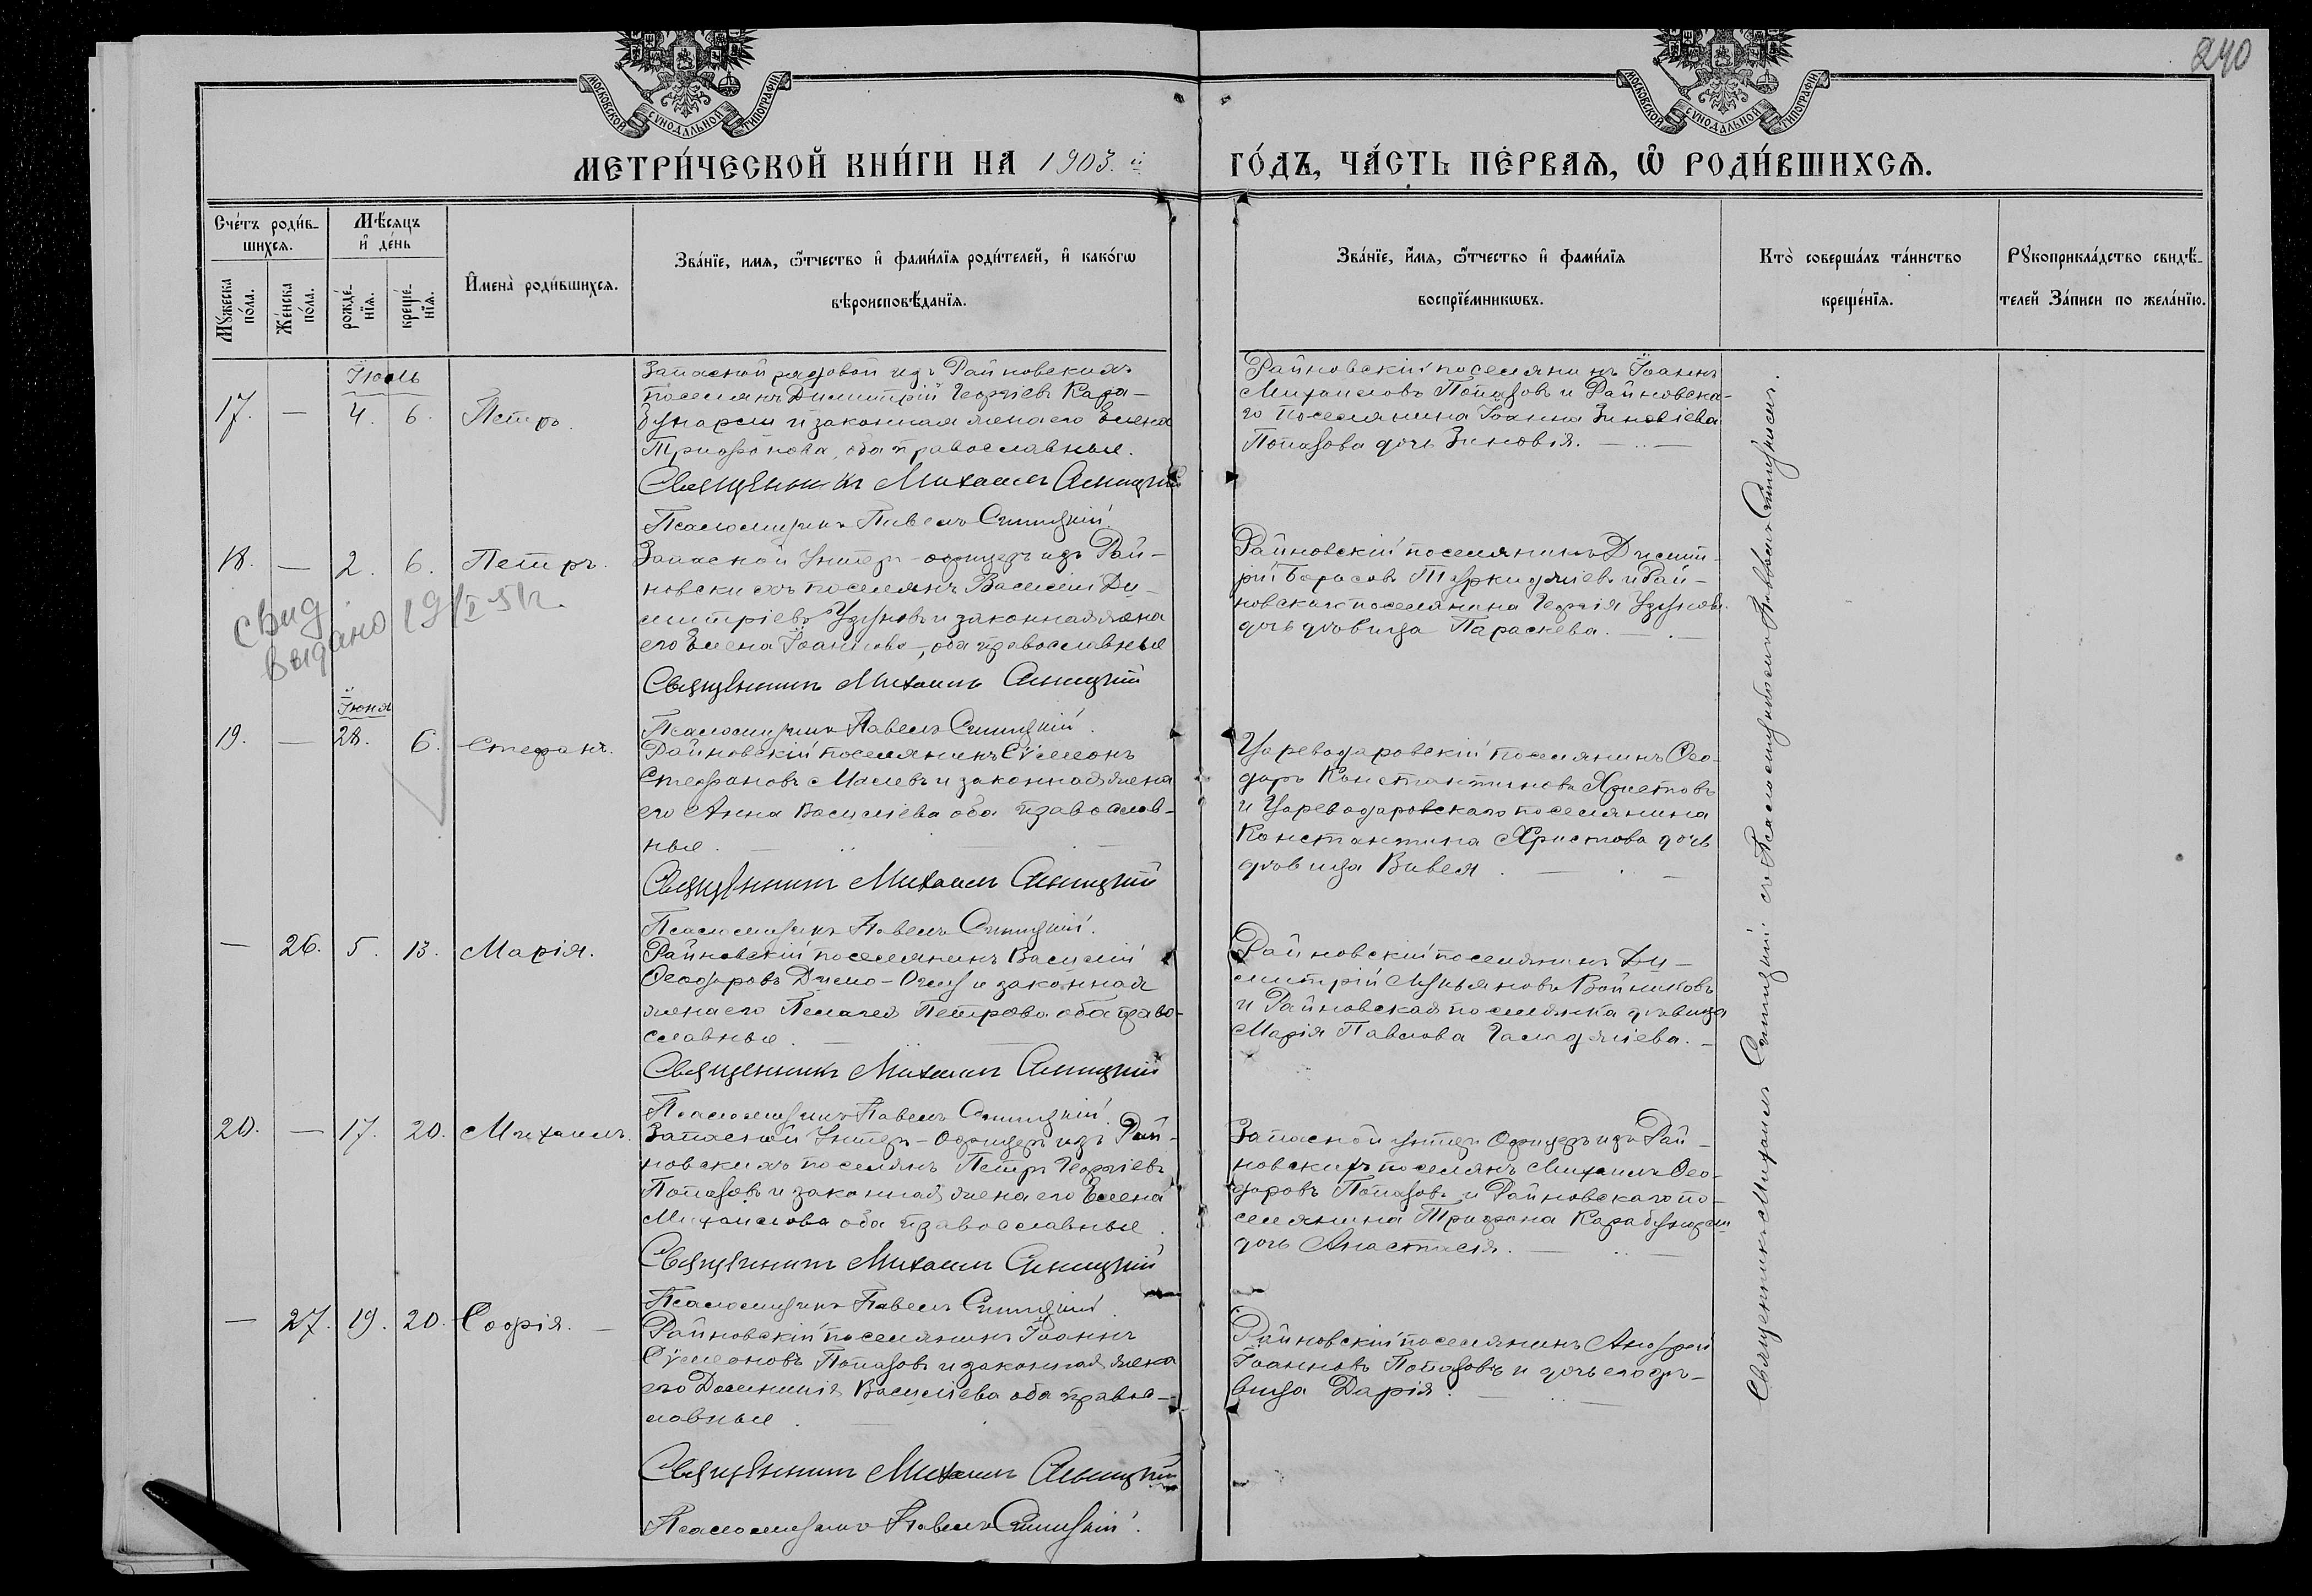 240
МОСКОВСКОЙ СѴНОДАЛЬНОЙ ТИПОГРАФІИ
МОСКОВСКОЙ СѴНОДАЛЬНОЙ ТИПОГРАФІИ
МЕТРИ́ЧЕСКОЙ КНИ́ГИ НА 1903.й ГО́ДЪ, ЧА́СТЬ ПЕ́РВАѦ, Ѽ РОДИ́ВШИХСѦ.
Сче́тъ роди́в-
шихсѧ.
Мꙋ́жеска
по́ла.
Же́нска
по́ла.
Мѣ́сѧцъ
и҆ де́нь
рожде́-
нїѧ.
креще́-
нїѧ.
И҆мена̀ роди́вшихсѧ.
Зва́нїе, имѧ, ѻ҆́тчество и҆ фами́лїѧ роди́телей, и҆ како́гѡ
вѣроисповѣ́данїѧ.
Зва́нїе, и҆́мѧ, ѻ҆́тчество и҆ фами́лїѧ
воспрїе́мникѡвъ.
Кто̀ соверша́лъ та́инство
креще́нїѧ.
Рꙋкоприкла́дство свидѣ́-
телей За́писи по жела́нїю.
Іюль
17. — 4. 6. Петръ.
Запасной рядовой изъ Райновскихъ
поселянъ Димитрій Георгіевъ Кара-
бунарли и законная жена его Елена
Трифонова, оба православные.
Священникъ Михаилъ Синицкій
Псаломщикъ Павелъ Синицкій.
Райновскій поселянинъ Іоаннъ
Михаиловъ Попазовъ и Райновска-
го поселянина Іоанна Зиновіева
Попазова дочь Зиновія. —
18. — 2. 6. Петръ.
Запасной Унтеръ-офицеръ изъ Рай-
новскихъ поселянъ Василій Ди-
митріевъ Узуновъ и законная жена
его Елена Іоаннова, оба православные
Священникъ Михаилъ Синицкій
Псаломщикъ Павелъ Синицкій.
Райновскій поселянинъ Димит-
рій Борисовъ и Рай-
новскаго поселянина Георгія Узунова
дочь дѣвица Параскева. —
свид
выдано 19/I 51г.
Іюня
19. — 28. 6. Стефанъ.
Райновскій поселянинъ Сѵмеонъ
Стефановъ и законная жена
его Анна Василіева оба православ-
ные. —
Священникъ Михаилъ Синицкій
Псаломщикъ Павелъ Синицкій.
Цареводаровскій поселянинъ Ѳео-
доръ Константиновъ Христовъ
и Цареводаровскаго поселянина
Константина Христова дочь
дѣвица. —
— 26. 5. 13. Марія.
Райновскій поселянинъ Василій
Ѳеодоровъ Димо-Оглу и законная
жена его Пелагея Петрова оба право-
славные. —
Священникъ Михаилъ Синицкій
Псаломщикъ Павелъ Синицкій.
Райновскій поселянинъ Ди-
митрій Войниковъ
и Райновская поселянка дѣвица
Марія Павлова. —
20. — 17. 20. Михаилъ.
Запасной Унтеръ-Офицеръ изъ Рай-
новскихъ поселянъ Петръ Георгіевъ
Попазовъ и законная жена его Елена
Михаилова оба православные.
Священникъ Михаилъ Синицкій
Псаломщикъ Павелъ Синицкій.
Запасной унтеръ Офицеръ изъ Рай-
новскихъ поселянъ Михаилъ Ѳео-
доровъ Попазовъ и Райновскаго по-
селянина Трифона Карабунарли
дочь Анастасія. —
— 27. 19. 20. Софія. —
Райновскій поселянинъ Іоаннъ
Сѵмеоновъ Попазовъ и законная жена
его Домникія Василіева оба правос-
лавные. —
Священникъ Михаилъ Синицкій
Псаломщикъ Павелъ Синицкій.
Райновскій поселянинъ Андрей
Іоанновъ Попазовъ и дочь его дѣ-
вица Дарія. —
Священникъ Михаилъ Синицкій съ Псаломщикомъ Павломъ Синицкимъ.